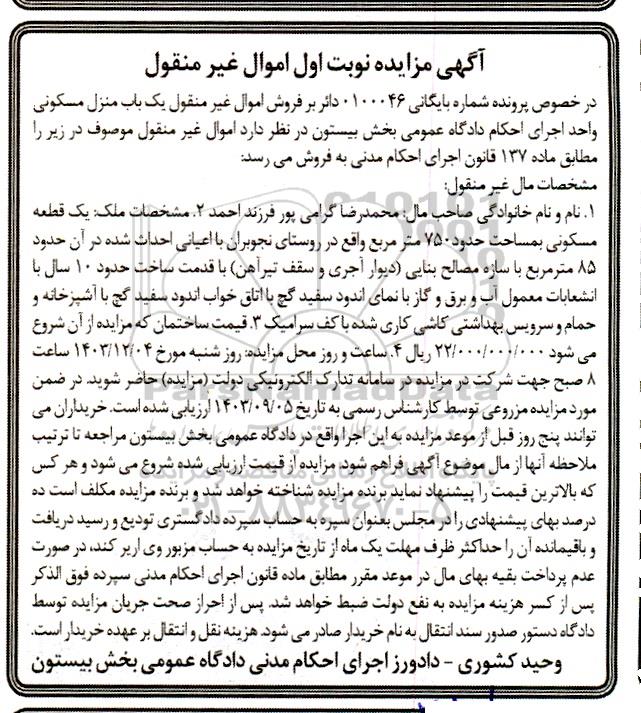 آگهی مزایده نوبت اول اموال غیر منقول
در خصوص پرونده شماره بایگانی ۰۱۰۰۰۴۶ دائر بر فروش اموال غیر منقول یک باب منزل مسکونی
واحد اجرای احکام دادگاه عمومی بخش بیستون در نظر دارد اموال غیر منقول موصوف در زیر را
مطابق ماده ۱۳۷ قانون اجرای احکام مدنی به فروش می رسد:
مشخصات مال غیر منقول:
۱. نام و نام خانوادگی صاحب مال: محمدرضا گرامی پور فرزند احمد ۲. مشخصات ملک: یک قطعه
مسکونی بمساحت حدود ۷۵۰ متر مربع واقع در روستای نجوبران با اعیانی احداث شده در آن حدود
۸۵ مترمربع با سازه مصالح بنایی (دیوار آجری و سقف تیرآهن) با قدمت ساخت حدود ۱۰ سال با
انشعابات معمول آب و برق و گاز با نمای اندود سفید گچ با اتاق خواب اندود سفید گچ با آشپزخانه و
حمام و سرویس بهداشتی کاشی کاری شده با کف سرامیک ۳. قیمت ساختمان که مزایده از آن شروع
می شود ۲۲/۰۰۰/۰۰۰/۰۰۰ ریال ۴. ساعت و روز محل مزایده: روز شنبه مورخ ۱۴۰۳/۱۲/۰۴ ساعت
۸ صبح جهت شرکت در مزایده در سامانه تدارک الکترونیکی دولت (مزایده) حاضر شوید. در ضمن
مورد مزایده مزروعی توسط کارشناس رسمی به تاریخ ۱۴۰۳/۰۹/۰۵ ارزیابی شده است. خریداران می
توانند پنج روز قبل از موعد مزایده به این اجرا واقع در دادگاه عمومی بخش بیستون مراجعه تا ترتیب
ملاحظه آنها از مال موضوع آگهی فراهم شود. مزایده از قیمت ارزیابی شده شروع می شود و هر کس
که بالاترین قیمت را پیشنهاد نماید برنده مزایده شناخته خواهد شد و برنده مزایده مکلف است ده
درصد بهای پیشنهادی را در مجلس بعنوان سپره به حساب سپرده دادگستری تودیع و رسید دریافت
و باقیمانده آن را حداکثر ظرف مهلت یک ماه از تاریخ مزایده به حساب مزبور وی اریر کند، در صورت
عدم پرداخت بقیه بهای مال در موعد مقرر مطابق ماده قانون اجرای احکام مدنی سپرده فوق الذکر
پس از کسر هزینه مزایده به نفع دولت ضبط خواهد شد. پس از احراز صحت جریان مزایده توسط
دادگاه دستور صدور سند انتقال به نام خریدار صادر می شود. هزینه نقل و انتقال بر عهده خریدار است.
وحید کشوری - دادورز اجرای احکام مدنی دادگاه عمومی بخش بیستون
ParsNamadData
۰۲۱-۸۸۳۴۹۶۷۰-۵